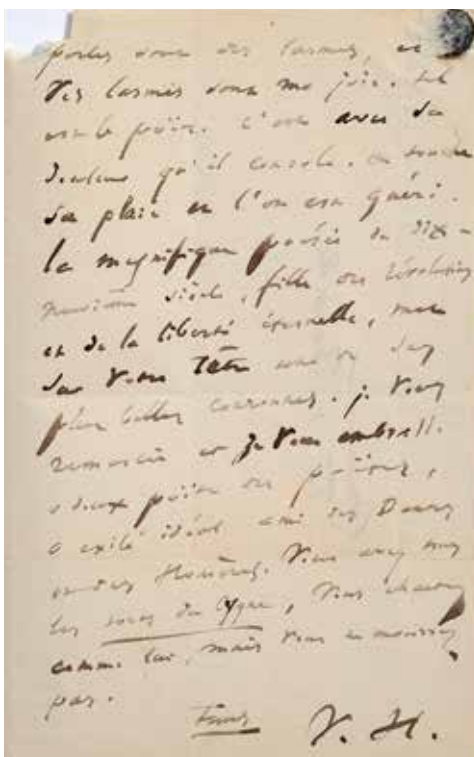 perles sont des larmes, et
vos larmes sont ma joie. tel
est le poëte. C'est avec sa
douleur qu'il console. on touche
sa plaie et l'on est guéri.
la magnifique poésie du dix-
neuvième siècle, fille des révolutions
et de la liberté éternelle, met
sur votre tête une de ses
plus belles couronnes. je vous
remercie et je vous embrasse.
ô doux poëte des poëtes,
ô exilé idéal ami des
et des Homères. Vous avez mes
les du cygne, vous chantez
comme lui, mais vous ne mourrez
pas.
V. H.